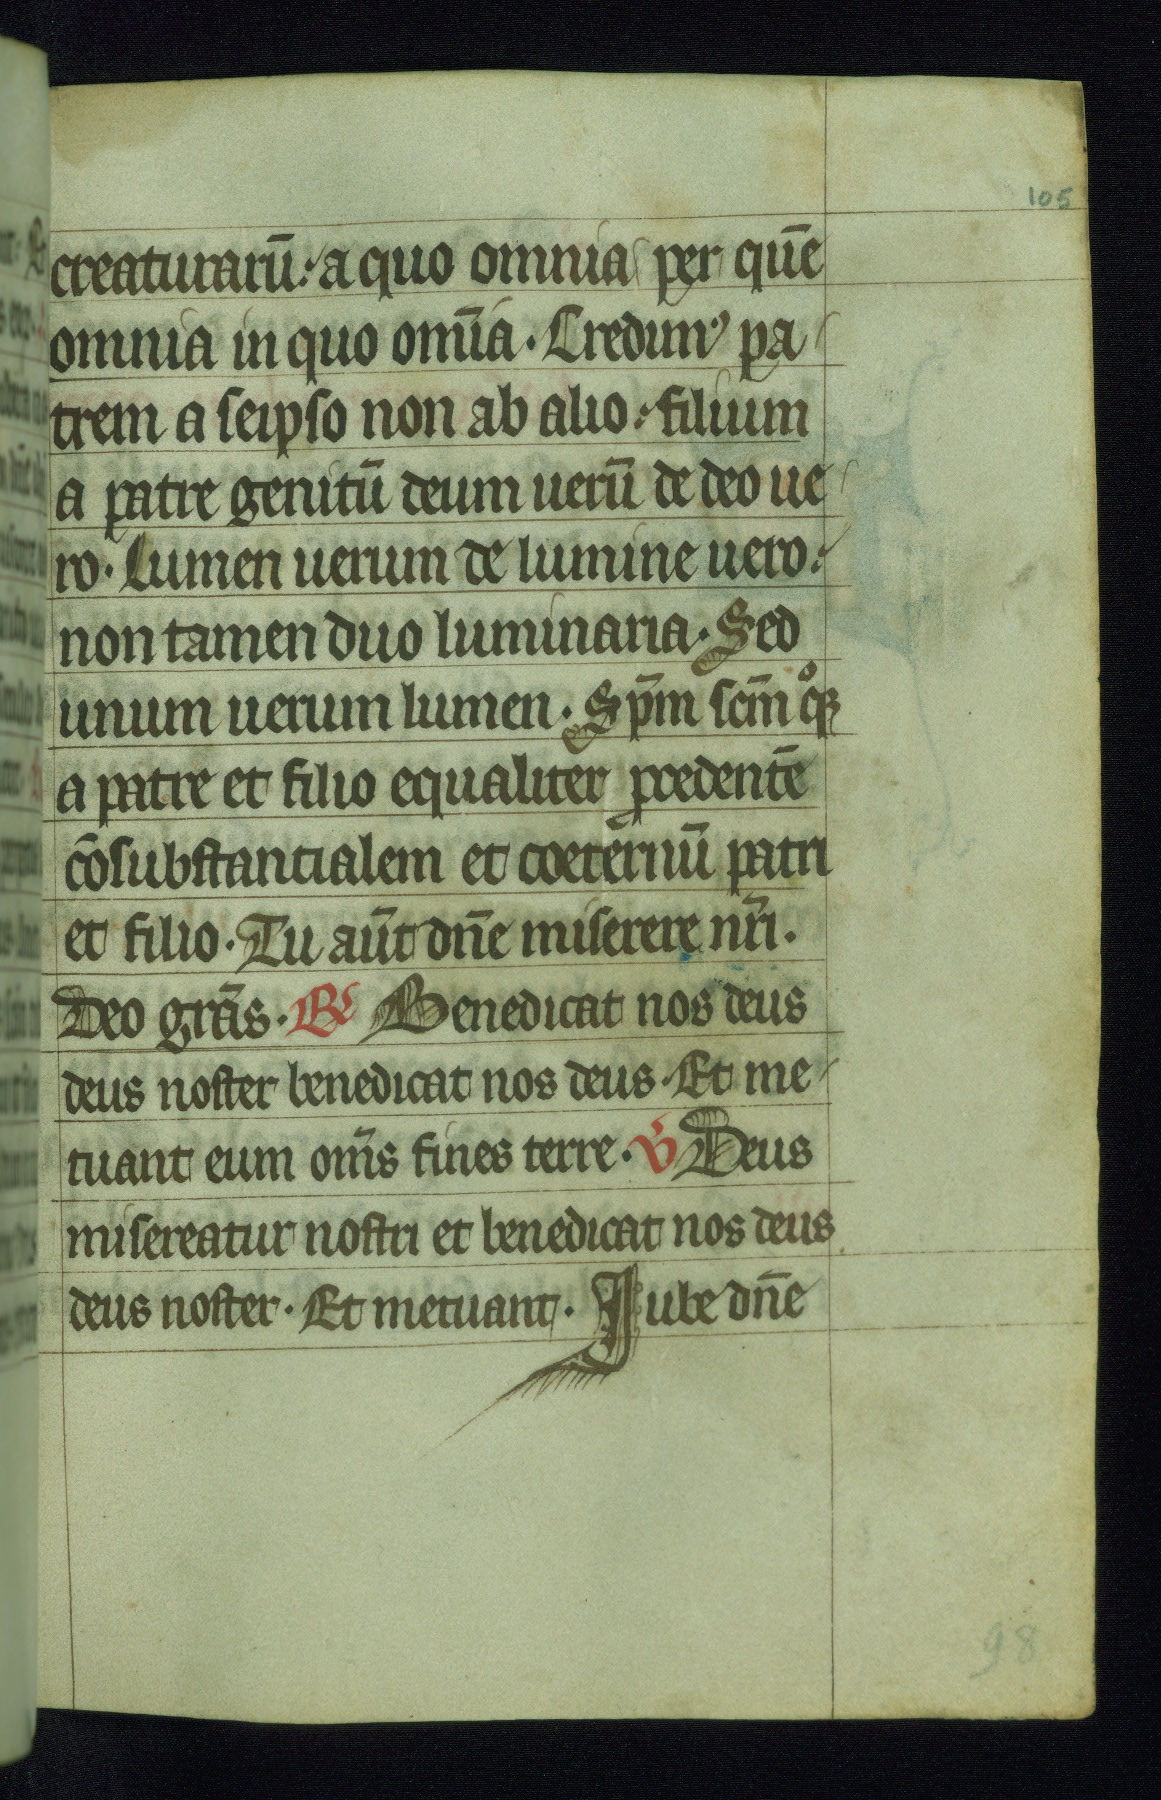 105
creaturaru̅: a quo omnia per que̅
omnia in quo om̅ia. Credimꝰ pa
trem a seipso non ab alio: filium
a patre genitu̅ deum ueru̅ de deo ue
ro. Lumen uerum de lumine uero:
non tamen duo luminaria. Sed
unum uerum lumen. Sp̅m sc̅m qͦꝫ
a patre et filio equaliter ꝓcedente̅
co̅substantialem et coeternu̅ patri
et filio. Tu au̅t dn̅e miserere nr̅i.
Deo gra̅s. ℟ Benedicat nos deus
deus noster benedicat nos deus. Et me
tuant eum om̅s fines terre. ℣ Deus
misereatur nostri et benedicat nos deus
deus noster. Et metuant. Jube dn̅e
98